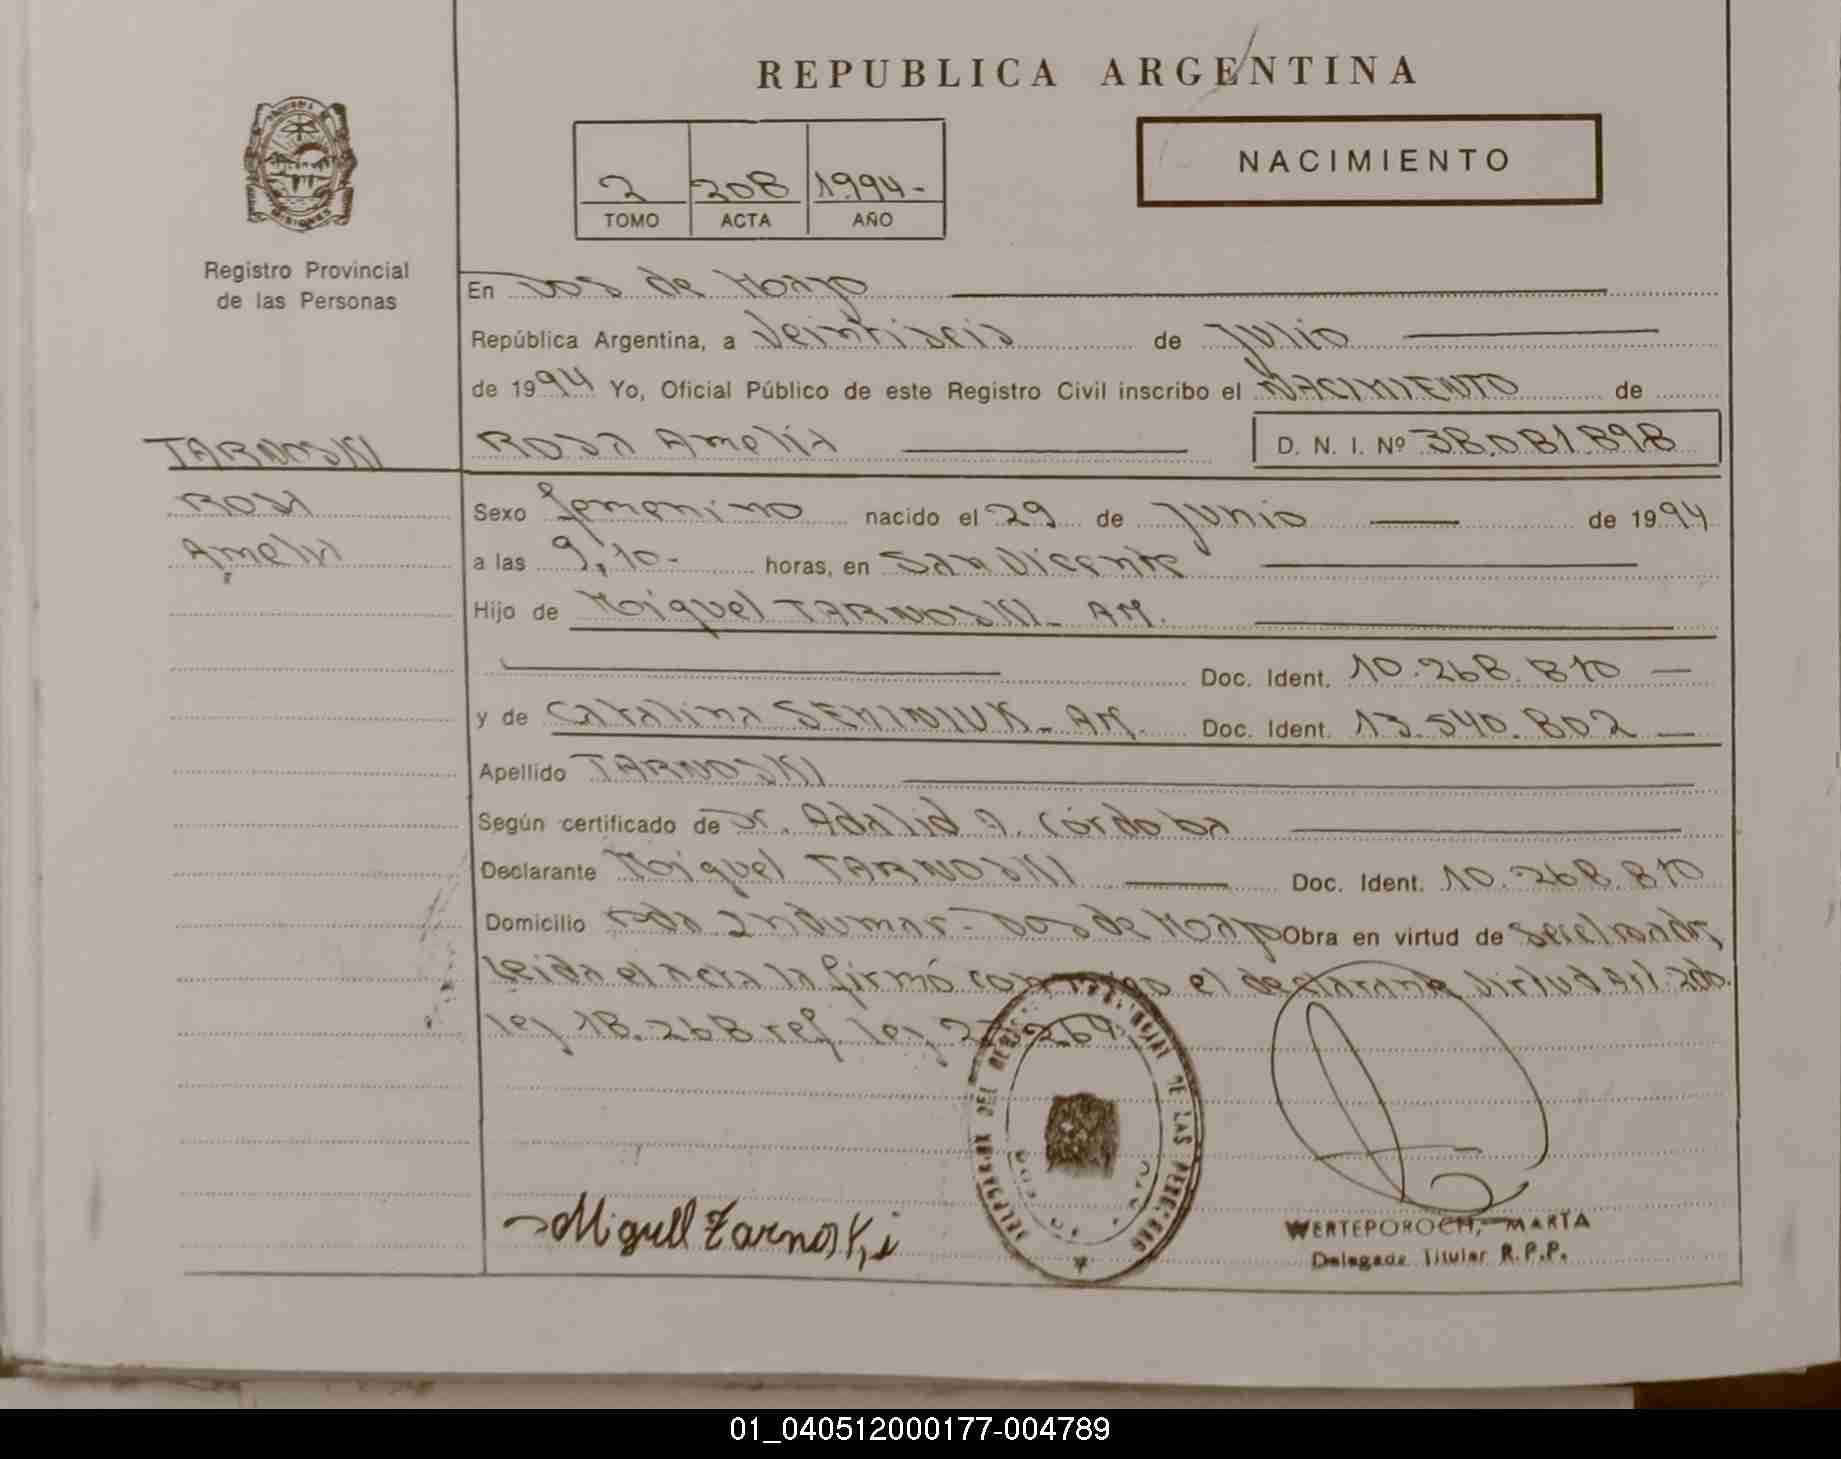 REPUBLICA ARGENTINA
MISIONES
Registro Provincial
de las Personas
2 208 1994-
TOMO ACTA AÑO
NACIMIENTO
En Dos de Mayo
República Argentina, a Veintiseis de Julio
de 1994 Yo, Oficial Público de este Registro Civil inscribo el NACIMIENTO de
TARNOSKI
ROSA Amelia D. N. I. Nº 38.081.898
ROSA
Amelia
Sexo femenino nacido el 29 de Junio de 1994
a las 9,10- horas, en San Vicente
Hijo de Miguel TARNOSKI- AM.
Doc. Ident. 10.268.810
y de Catalina SEMINIUK- AM. Doc. Ident. 13.540.802
Apellido TARNOSKI
Según certificado de Dr. Adalid A. Córdoba
Declarante Miguel TARNOSKI Doc. Ident. 10.268.810
Domicilio Indumar- Dos de Mayo Obra en virtud de
Leida el acta la firmó conmigo el declarante virtud Art. 2do.
ley 18.268 ref. ley
Miguell Tarnoski
DELEGACION DEL REGISTRO DE LAS PERSONAS
DOS DE MAYO
WERTEPOROCH, MARTA
Delegada Titular R.P.P.
01_040512000177-004789